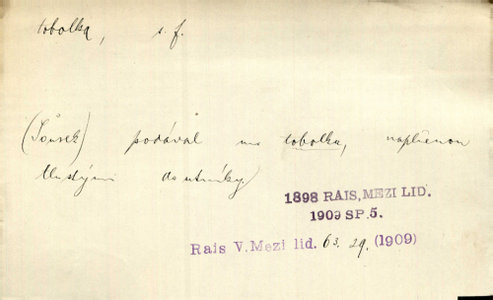 tobolka, s. f.
(Šousek) podával mu tobolku, naplněnou
tlustými doutníky
1898 RAIS, MEZI LID.
1909 SP. 5.
Rais V. Mezi lid. 63. 29. (1909)